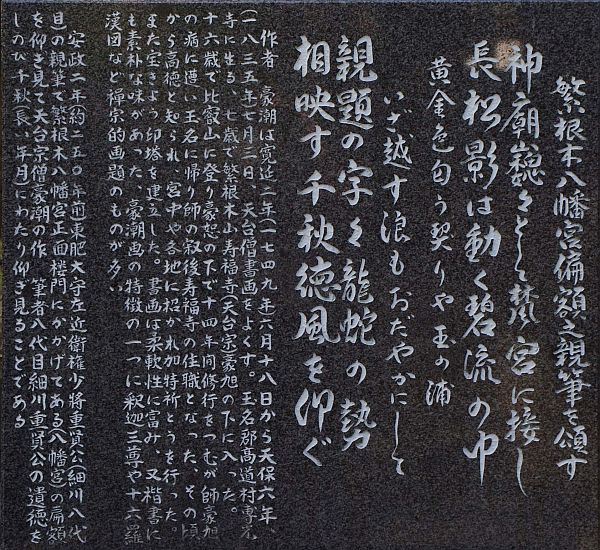 繁根木八幡宮偏額之親筆を頌す
神廟巍々として梵宮に接し
長松影は動く碧流の中
黄金色匂う契りや玉の浦
いざ越す浪もおだやかにして
親題の字々龍蛇の勢
相映す千秋徳風を仰ぐ
作者 豪潮は寛延二年(一七四九年六月十八日から天保六年、
(一八三五年七月三日、天台僧書画をよくす。玉名郡高道村専光
寺に生る、七歳で繁根木山寿福寺(天台宗豪旭の下に入った。
十六歳で比叡山に登り豪恕の下で十四年間修行をつむが師豪旭
の病に遭い玉名に帰り師の寂後寿福寺の住職となった、その頃
から高徳と知られ、宮中や各地に招かれ加特祈とうを行った。
また宝きよう印塔を建立した。書画は柔軟性に富み、又楷書に
も素朴な味があった、豪潮画の特徴の一つに釈迦三尊や十六羅
漢図など禅宗的画題のものが多い
安政二年(約二五〇年前)東肥大守左近衛権少将重賢公(細川八代
目)の親筆で繁根木八幡宮正面楼門にかかげてある(八幡宮)の扁額
を仰ぎ見て天台宗僧豪潮の作、筆者八代目細川重賢公の遺徳を
しのび千秋(長い年月)にわたり仰ぎ見ることである